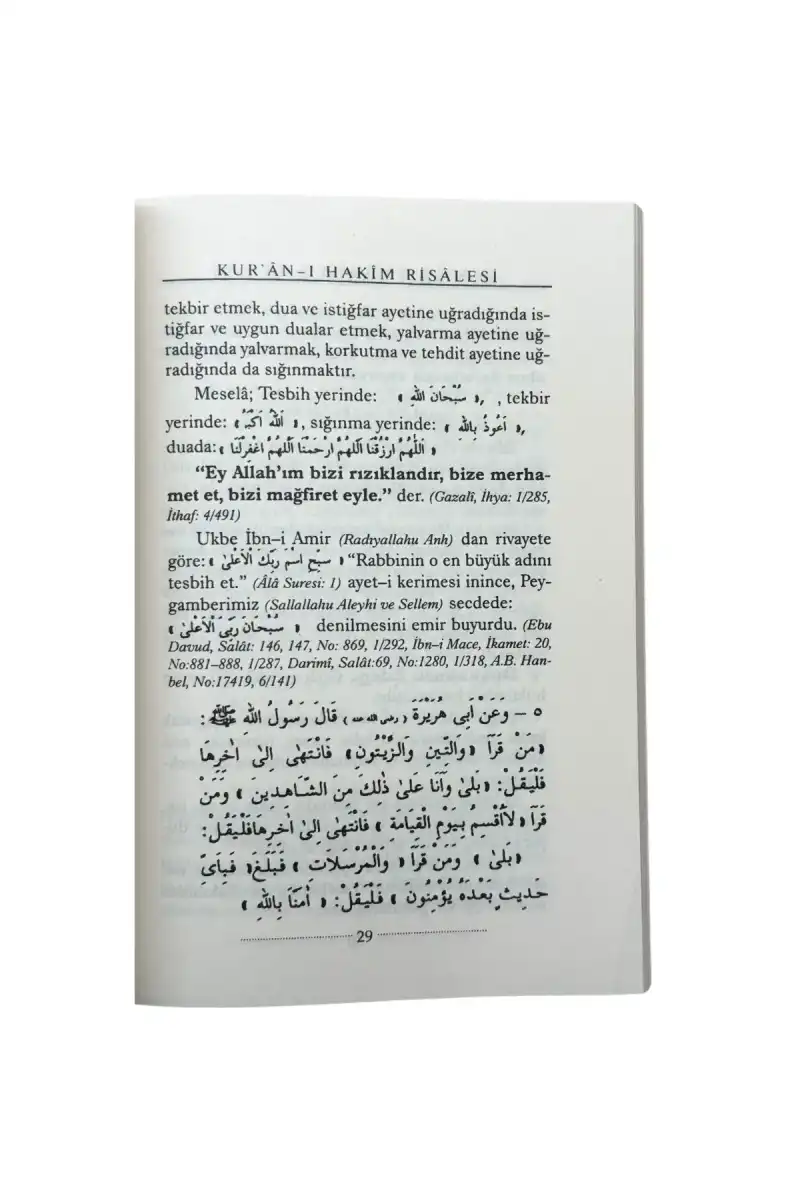 KUR'ÂN–I HAKÎM RİSÂLESİ
tekbir etmek, dua ve istiğfar ayetine uğradığında is-
tiğfar ve uygun dualar etmek, yalvarma ayetine uğ-
radığında yalvarmak, korkutma ve tehdit ayetine uğ-
radığında da sığınmaktır.
Meselâ; Tesbih yerinde: « سُبْحَانَ اللهِ », , tekbir
yerinde: « اَللهُ اَكْبَرُ », sığınma yerinde: « اَعُوذُ بِاللهِ »,
duada: « اَللّٰهُمَّ ارْزُقْنَا اَللّٰهُمَّ ارْحَمْنَا اَللّٰهُمَّ اغْفِرْلَنَا »
“Ey Allah’ım bizi rızıklandır, bize merha-
met et, bizi mağfiret eyle.” der. (Gazalî, İhya: 1/285,
İthaf: 4/491)
Ukbe İbn–i Amir (Radıyallahu Anh) dan rivayete
göre: « سَبِّحِ اسْمَ رَبِّكَ الْاَعْلٰى » “Rabbinin o en büyük adını
tesbih et.” (Âlâ Suresi: 1) ayet–i kerimesi inince, Pey-
gamberimiz (Sallallahu Aleyhi ve Sellem) secdede:
« سُبْحَانَ رَبِّىَ الْاَعْلٰى » denilmesini emir buyurdu. (Ebu
Davud, Salât: 146, 147, No: 869, 1/292, İbn–i Mace, İkamet: 20,
No:881–888, 1/287, Darimî, Salât:69, No:1280, 1/318, A.B. Han-
bel, No:17419, 6/141)
٥ – وَعَنْ اَبِى هُرَيْرَةَ (رضى الله عنه) قَالَ رَسُولُ اللهِ ﷺ :
«مَنْ قَرَأَ «وَالتِّينِ وَالزَّيْتُونِ» فَانْتَهٰى اِلٰى اٰخِرِهَا
فَلْيَقُلْ: «بَلٰى وَاَنَا عَلٰى ذٰلِكَ مِنَ الشَّاهِدِينَ» وَمَنْ
قَرَأَ «لَااُقْسِمُ بِيَوْمِ الْقِيَامَةِ» فَانْتَهٰى اِلٰى اٰخِرِهَا فَلْيَقُلْ:
«بَلٰى» وَمَنْ قَرَأَ «وَالْمُرْسَلَاتِ» فَبَلَغَ «فَبِاَىِّ
حَدِيثٍ بَعْدَهُ يُؤْمِنُونَ» فَلْيَقُلْ: «اٰمَنَّا بِاللهِ»
29